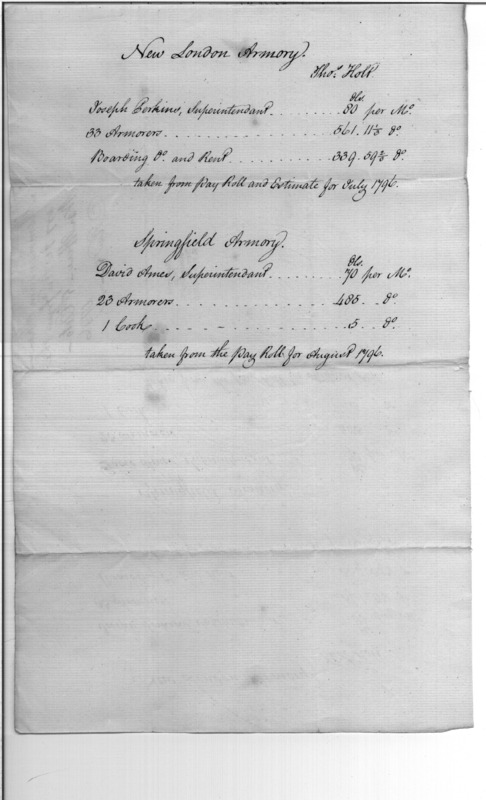 New London Armory.
Thos. Holt
Dls.
Joseph Perkins, Superintendant . . . . . . . . 80 per Mo.
33 Armorers . . . . . . . . . . . . . . . . 561.11⅔ do.
Boarding Do. and Rent . . . . . . . . . . . . 339.39⅔ do.
taken from Pay Roll and Estimate for July 1796.
Springfield Armory.
Dls.
David Ames, Superintendant . . . . . . . . 70 per Mo.
23 Armorers . . . . . . . . . . . . . . . . 485 . . do.
1 Cook . . . . . . . . . . . . . . . . 5 . . do.
taken from the Pay Roll for August 1796.